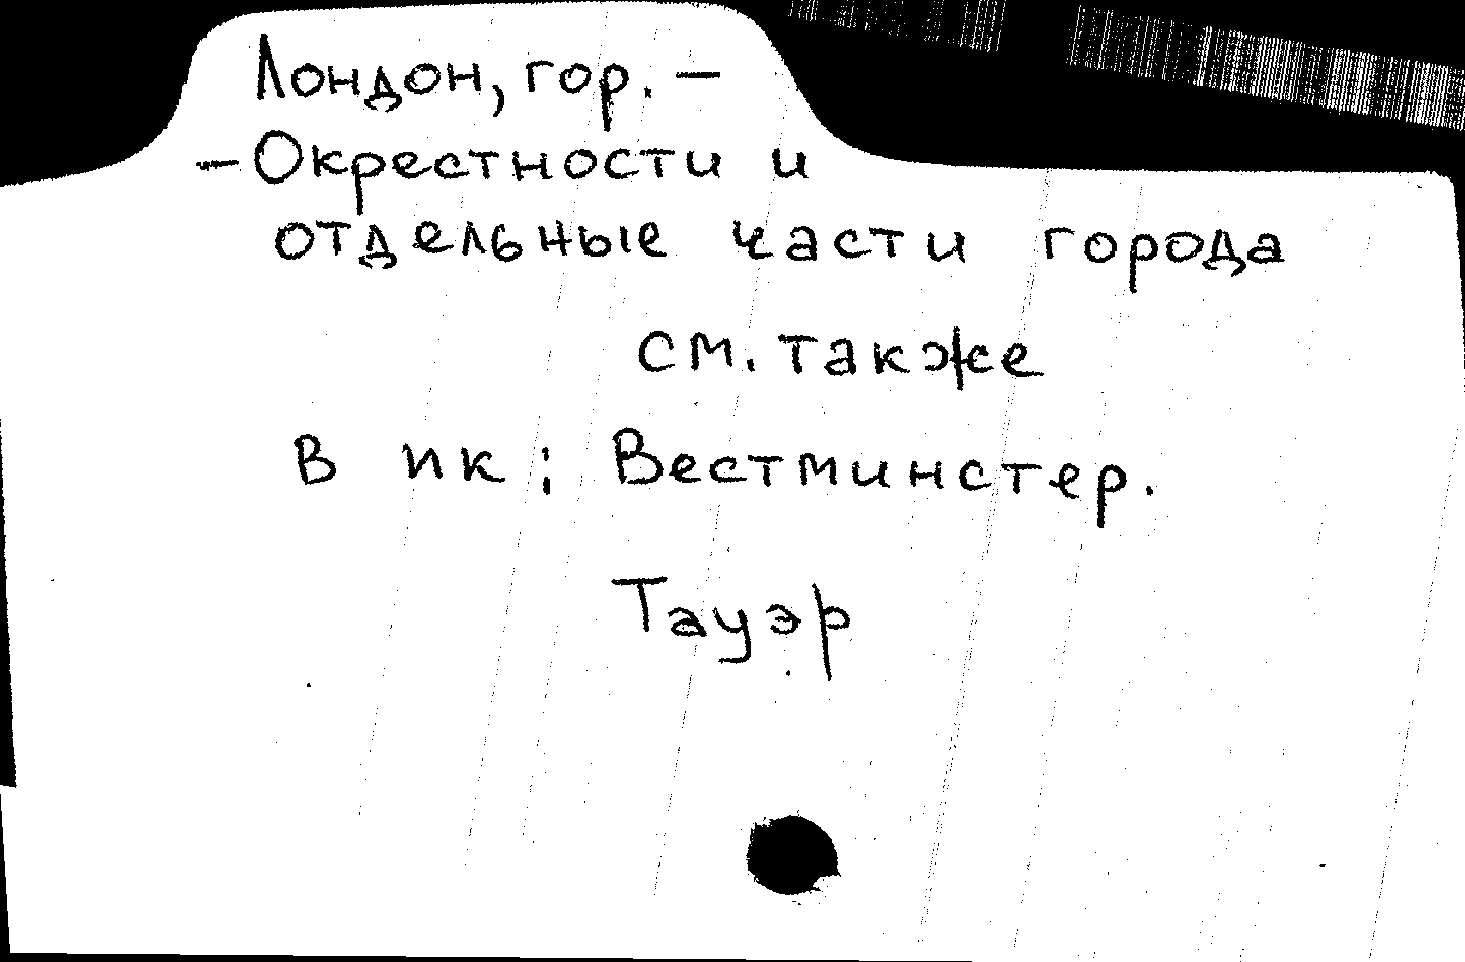 Лондон, гор. –
– Окрестности и
отдельные части города
см. также
в ик: Вестминстер.
Тауэр